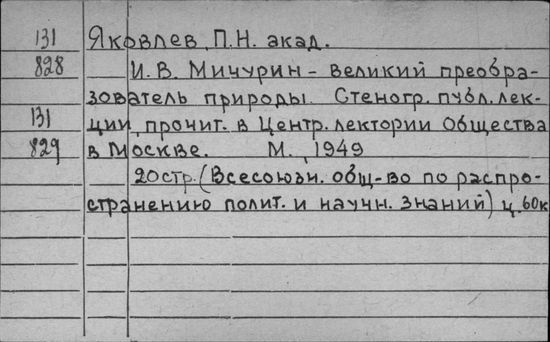 131 Яковлев П.Н. акад.
828 И. В. Мичурин - великий преобра-
зователь природы. Стеногр. публ. лек-
131 ции, прочит. в Центр. лектории Общества
829 в Москве. М., 1949
20стр. (Всесоюзн. общ-во по распро-
странению полит. и научн. знаний) ц. 60к